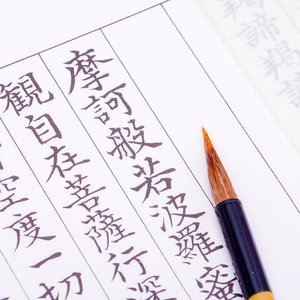 羯諦羯諦
摩訶般若波羅蜜
観自在菩薩行深
空度一切